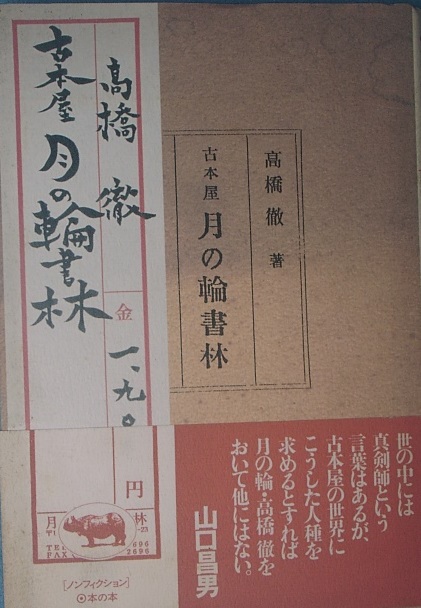 高橋徹
古本屋
月の輪書林
金
一、九〇
円
高橋徹 著
古本屋
月の輪書林
世の中には
真剣師という
言葉はあるが、
古本屋の世界に
こうした人種を
求めるとすれば
月の輪・高橋徹を
おいて他にはない。
山口昌男
月
林
-23
TE
696
FAX
2696
[ノンフィクション]
本の本